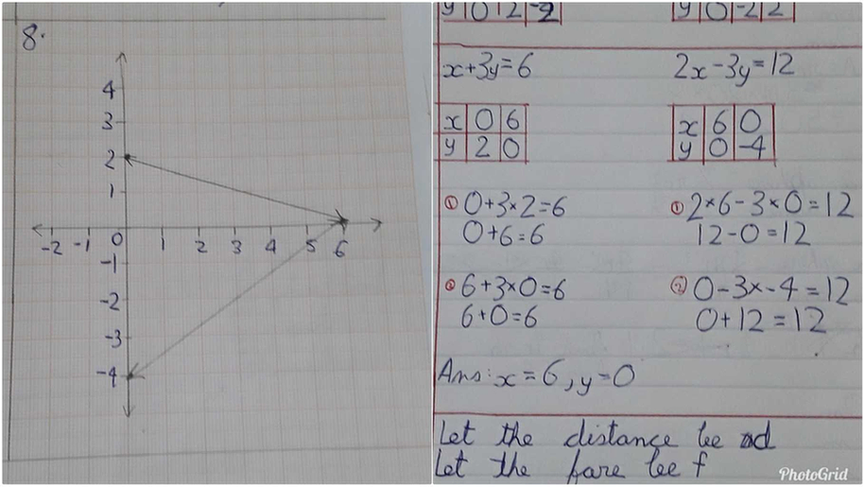 8.
4
3
2
1
-2 -1 0 1 2 3 4 5 6
-1
-2
-3
-4
y 0 2 -2
y 0 -2 2
x+3y=6
2x-3y=12
x 0 6
y 2 0
x 6 0
y 0 -4
① 0+3×2=6
0+6=6
① 2×6-3×0=12
12-0=12
② 6+3×0=6
6+0=6
② 0-3×-4=12
0+12=12
Ans: x=6, y=0
Let the distance be d
Let the fare be f
PhotoGrid